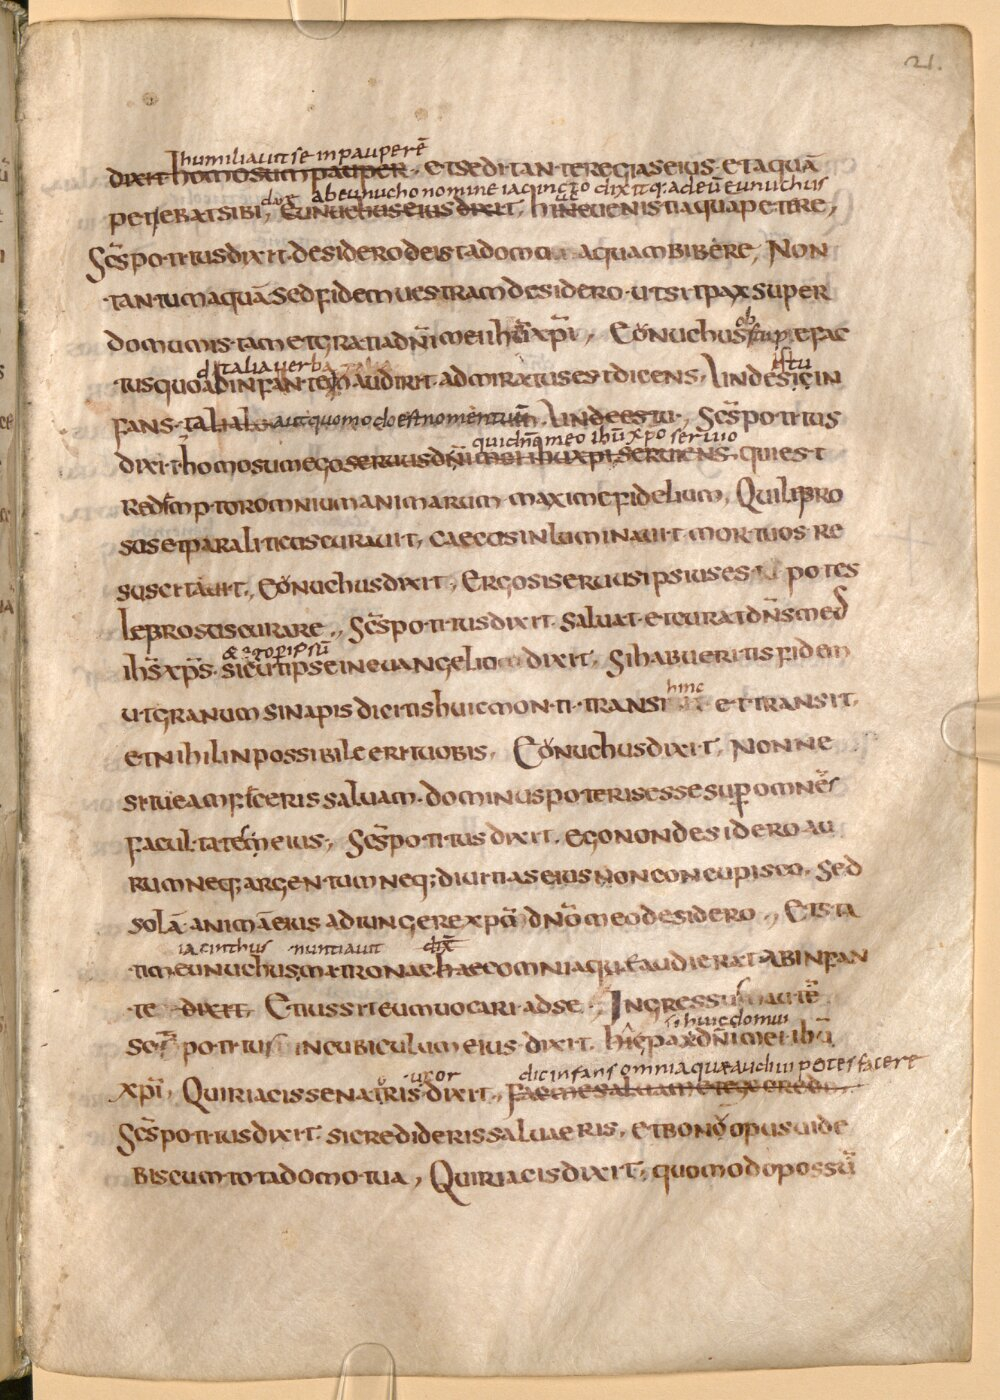 21.
humiliauit se in pauperē
dixit homo sum pauper. et sedit ante regias eius. et aquā
dix̄ ab eunucho nomine iaquincto dixitq: ad eū eunuchus
petiebat sibi, eunuchus eius dixit, hinc uenisti aqua petere,
Sc̄s potitus dixit. desidero de ista domo aquam bibere, Non
tantum aquā sed fidem uestram desidero. ut sit pax super
domum istam et gratia dn̄i mei ihū xp̄i, Eonuchus
ob stup efac
d̄ talia uerba
tus quod infantem audirit. admiratus est dicens, Unde sic in
es tu
fans talia aut quomodo est nomen tuum. Unde es tu, Sc̄s potitus
quid n̄ā meo ihū xpo seruio
dixit. homo sum ego seruus dn̄i mei ihu xpi seruiens. qui est
redemptor omnium animarum maxime fidelium, Qui lepro
sos et paraliticus curauit, caecos inluminauit mortuos re
suscitauit, Eonuchus dixit, Ergo si seruus ipsius es tu potes
leprosus curare, Sc̄s potitus dixit. saluat et curat dn̄s meus
ihs̄ xps̄. sicut ipse in euangelio dixit. Si habueritis fidem
ut granum sinapis dicitis huic monti. transi hinc et transit,
et nihil inpossibile erit uobis, Eonuchus dixit, Nonne
si tu eam feceris saluam. dominus poteris esse sup omnēs
facultatem eius, Sc̄s potitus dixit. ego non desidero au
rum neq; argentum neq; diuitias eius non concupisco. sed
solā animā eius adiungere xpō dn̄o meo desidero, Et sta
iacinthus nuntiauit dix̄
tim eunuchus matronae haec omnia quae audierat ab infan
te dixit Et iussit eum uocari ad se, Ingressus autē
si huic domui
sc̄s potitus in cubiculum eius. dixit. hic pax dn̄i mei ihū
uxor dic infans omnia quae audiui potes facere
xpi, Quiriacis senatoris dixit, fac me saluam et ego credo
Sc̄s potitus dixit. si credideris salua eris, et bono opus uide
bis cum tota domo tua, Quiriacis dixit, quomodo possū